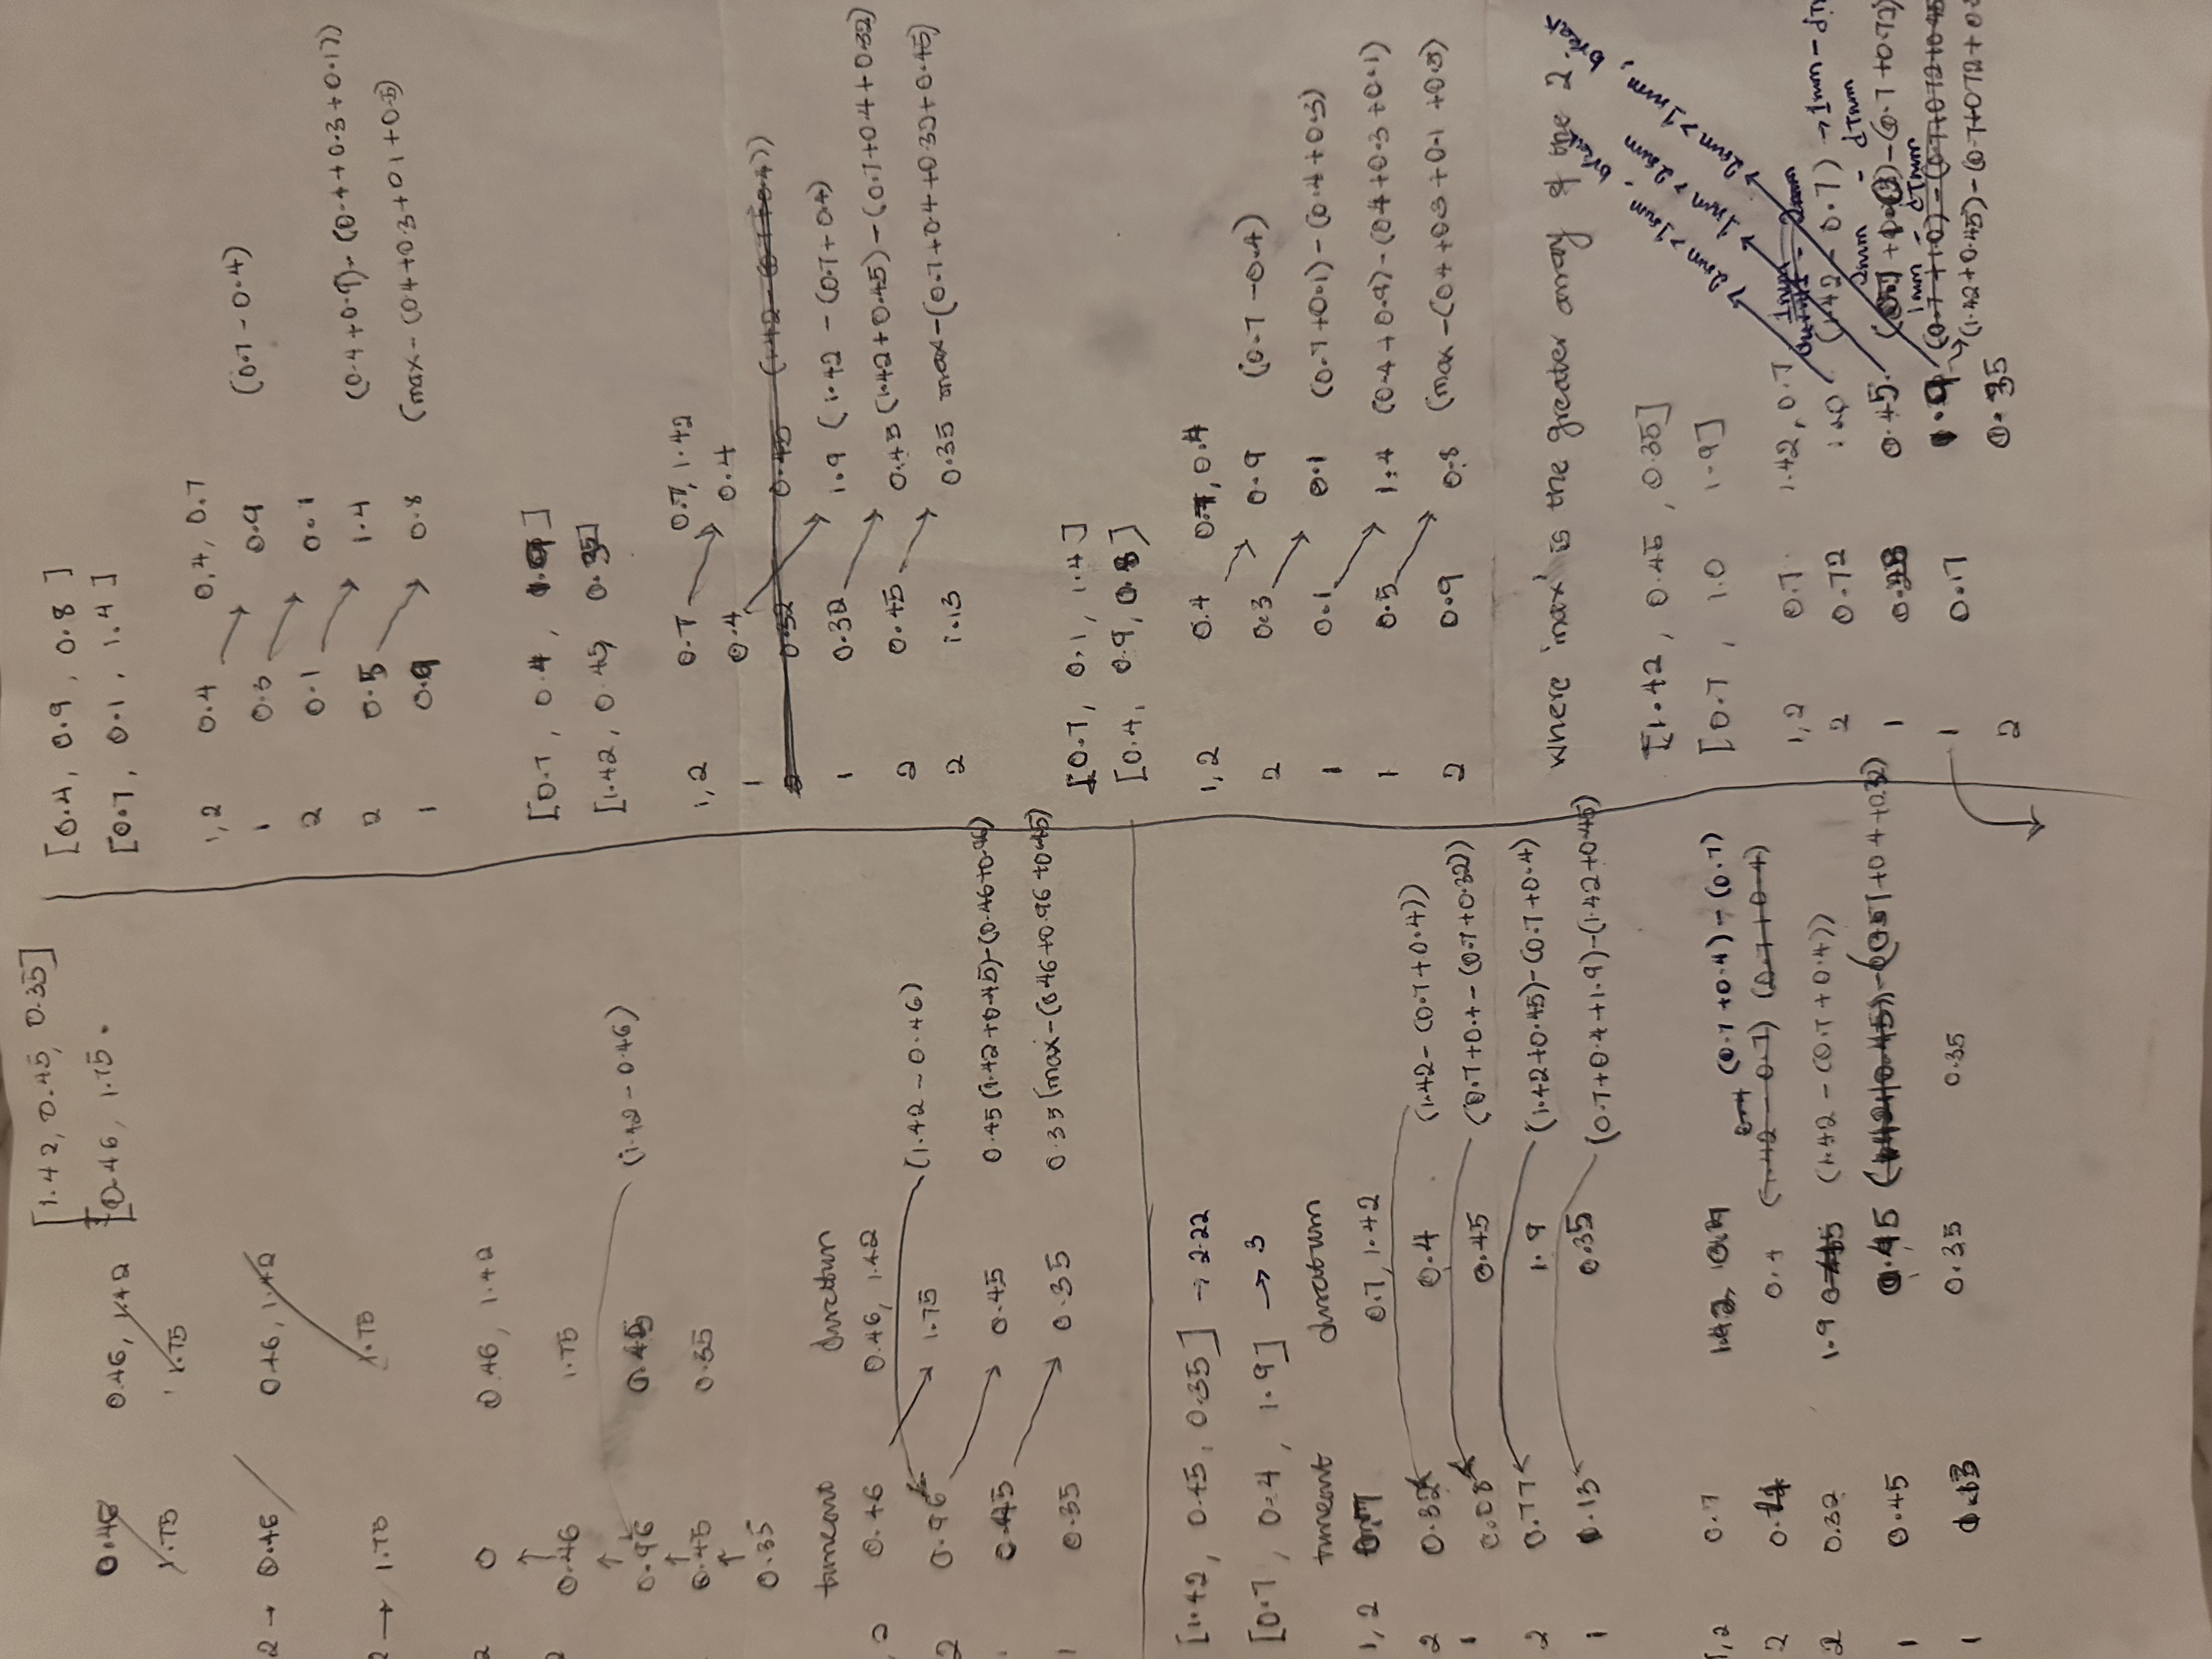 [1.42, 0.45, 0.35]
[0.46, 1.75.
0.46
0.46, 1.42
1.75
1.75
2 → 0.46
0.46, 1.42
2 → 1.75
1.75
2 0 0.46, 1.42
↑
2 0.46 1.75
↑
0.96 0.45 (1.42 - 0.46)
↑
0.45 0.35
↑
0.35
timeout duration
, 2 0.46 0.46, 1.42
2 0.96 1.75 (1.42 - 0.46)
0.45 0.45 0.45 (1.42+0.45)-(0.46+0.96)
1 0.35 0.35 0.35 (max-(0.46+0.96+0.45)
[1.42, 0.45, 0.35] → 2.22
[0.7, 0.4, 1.9] → 3
timeout duration
1, 2 0.7 0.7, 1.42
2 0.32 0.4 (1.42-(0.7+0.4))
1 0.08 0.45 (0.7+0.4-(0.7+0.32))
2 0.77 1.9 (1.42+0.45)-(0.7+0.4)
1 1.13 0.35 (0.7+0.4+1.9)-(1.42+0.45)
1, 2 0.7 1.42, (0.7+0.4)-(0.7)
2 0.4 0.4 (1.42-0.7) (0.7+0.4)
2 0.32 1.9 0.45 (1.42-(0.7+0.4))
1 0.45 0.45 (1.42+0.45)-(0.7+0.4+0.32)
1 1.13 0.35 0.35
[0.4, 0.9, 0.8]
[0.7, 0.1, 1.4]
1, 2 0.4 0.4, 0.7
1 0.3 0.9 (0.7-0.4)
2 0.1 0.1
2 0.5 1.4 (0.4+0.9)-(0.4+0.3+0.1))
1 0.9 0.8 (max-(0.4+0.3+0.1+0.5)
[0.7, 0.4, 1.9]
[1.42, 0.45, 0.35]
1, 2 0.7 0.7, 1.42
1 0.4 0.4
2 0.32 0.45 (1.42-(0.7+0.4))
1 0.32 1.9 (1.42-(0.7+0.4)
2 0.45 0.45 (1.42+0.45)-(0.7+0.4+0.32)
2 1.13 0.35 max-(0.7+0.4+0.32+0.45)
[0.7, 0.1, 1.4]
[0.4, 0.9, 0.8]
1, 2 0.4 0.7, 0.4
2 0.3 0.9 (0.7-0.4)
1 0.1 0.1 (0.7+0.1)-(0.4+0.3)
1 0.5 1.4 (0.4+0.9)-(0.4+0.3+0.1)
2 0.9 0.8 (max-(0.4+0.3+0.1+0.5)
where 'max' is the greater array of the 2.
2num > 1num - break
1num > 2num
2num > 1num, break
[1.42, 0.45, 0.35]
[0.7, 1.0 1.9]
1, 2 0.7 1.42, 0.7 1num
- 2num
2 0.72 1.0 (1.42-0.7) → 1num - dT
2num - dTnum
1 0.28 0.45 -(0.7+0.72)
1num - dTnum
1 0.17 1.9 (0.7+1.0)-(0.7+0.72+0.45
(1.42+0.45)-(0.7+0.72+0.
2 0.35